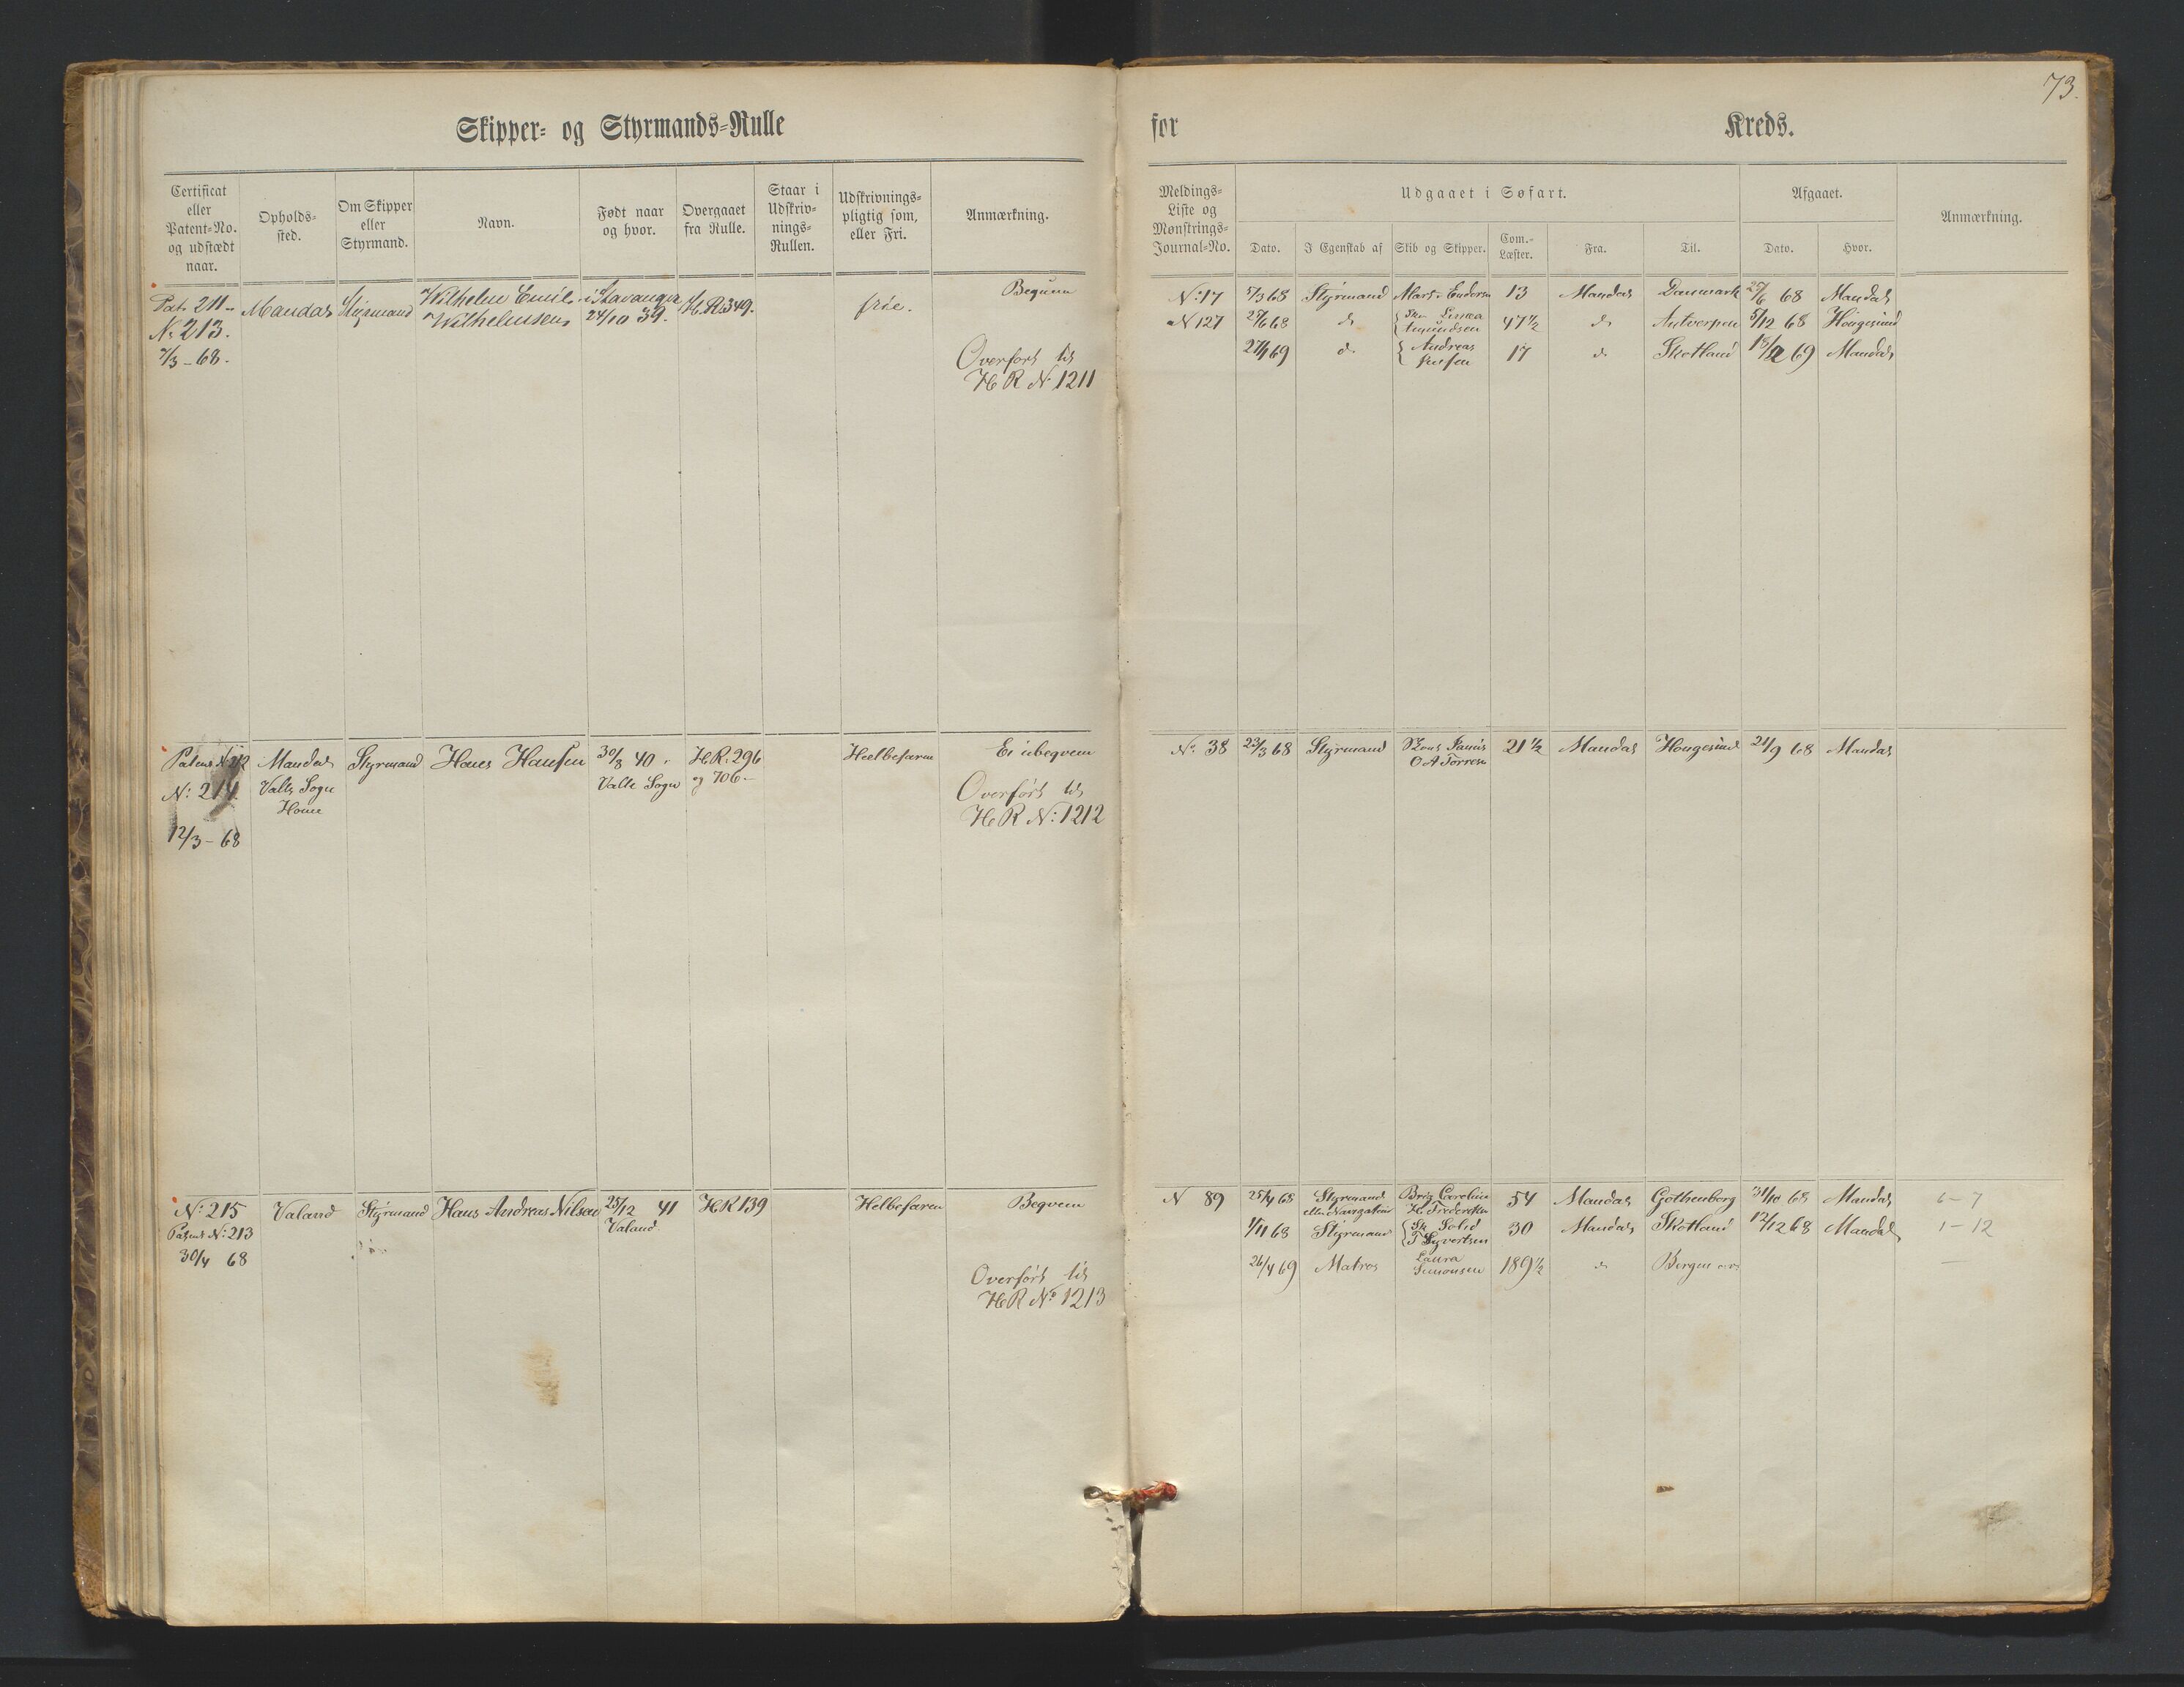 73.
Skipper- og Styrmands-Rulle for Kreds.
Certificat eller Patent-No. og udstædt naar.
Opholds-sted.
Om Skipper eller Styrmand.
Navn.
Født naar og hvor.
Overgaaet fra Rulle.
Staar i Udskriv-nings-Rullen.
Udskrivnings-pligtig som, eller Fri.
Anmærkning.
Meldings-Liste og Mønstrings-Journal-No.
Udgaaet i Søfart.
Dato.
I Egenskab af
Skib og Skipper.
Com.-Læster.
Fra.
Til.
Afgaaet.
Dato.
Hvor.
Anmærkning.
Pat. 211 -
No 213.
7/3 - 68.
Mandal
Styrmand
Wilhelm Emil
Wilhelmsen
i Stavanger
24/10 39.
H.R. 349.
frie.
Beqvem
Overført til
H R No 1211
No: 17 5/3 68 Styrmand 13 Mandal Danmark 25/6 68 Mandal
No 127 27/6 68 do Amundsen 47 1/2 do Antverpen 5/12 68 Höugesund
27/1 69 do Andreas 17 do Skotland 69 Mandal
Patent No 212
No: 214
12/3 - 68
Mandal
Valle Sogn
Home
Styrmand
Hans Hansen
30/8 40
Valle Sogn
H.R. 296
og 706 -
Heelbefaren
Ei ubeqvem
Overført til
H R No: 1212
No. 38 23/3 68 Styrmand 21 1/2 Mandal Hougesund 21/9 68 Mandal
O A Torresen
No: 215
Patent No: 213
30/4 68
Valand
Styrmand
Hans Andreas Nilsen
25/12 41
Valand
H R 139
Helbefaren
Beqvem
Overført til
H R No 1213
N 89 25/4 68 Styrmand Brig Caroline 54 Mandal Gothenborg 31/10 68 Mandal 6 - 7
1/11 68 Styrmand Sk Solid 30 Mandal Skotland 12/12 68 Mandal 1 - 12
T Syvertsen
26/4 69 Matros Laura 189 1/2 do Bergen —
Simonsen